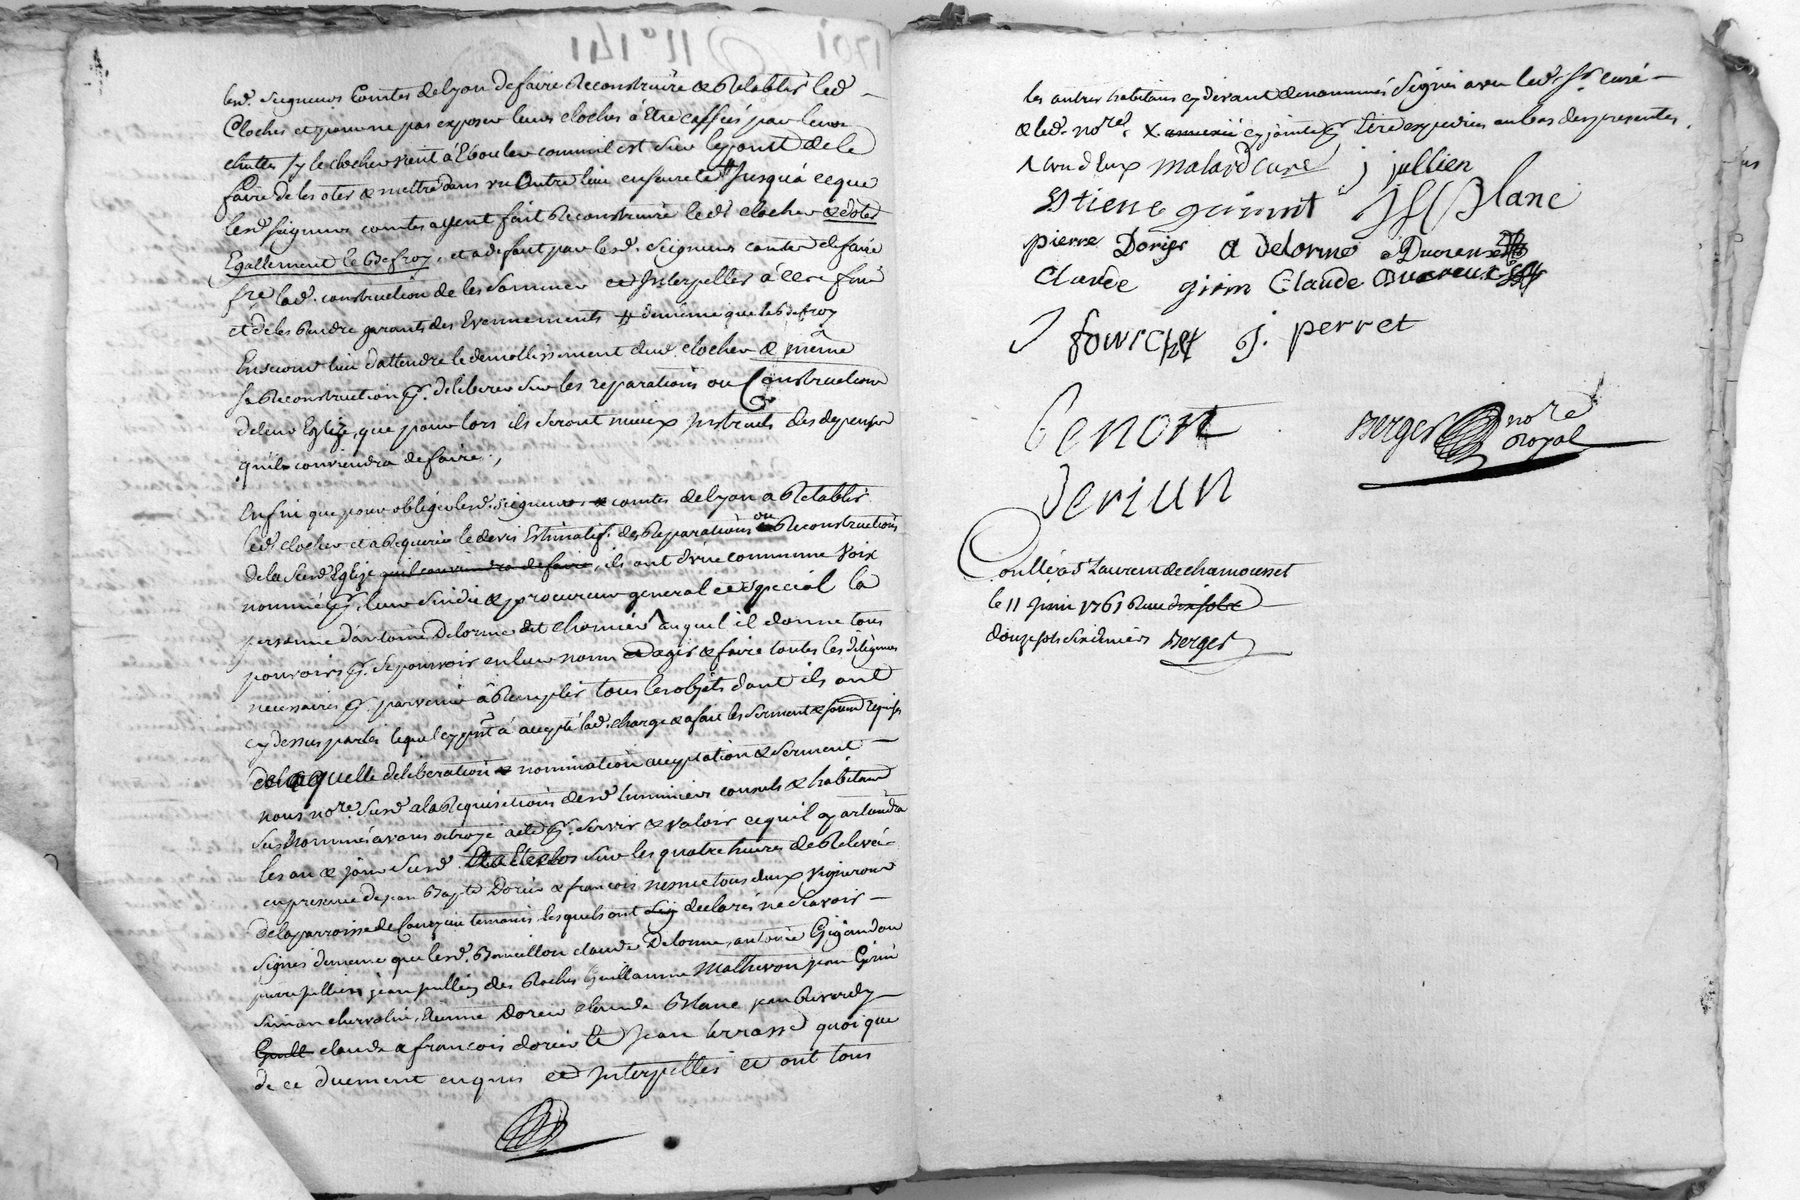 lesd. Seigneurs Comtes de lyon de faire Reconstruire & Retablir led
Cloches et pour ne pas exposer leurs cloches à Etre caffées par leur
chutte sy le clocher vient à Ebouler comm'il est sur le point de le
faire de les oter & mettre dans un Autre lieu en seureté # Jusqu'à ceque
lesd. seigneurs comtes ayent fait Reconstruire led. clocher
Egallement le Befroy, et a defaut par lesd. Seigneurs comtes de faire
fre lad. construction de les sommer et Interpeller à ce
et de les Rendre garants des Evennements # de meme que le befroy
En second lieu d'attendre le demollissement dud. clocher & même
sa Reconstruction pr. deliberer sur les reparations ou Construction
de leur Eglize, que pour lors ils seront mieux Instruits des depenses
qu'il conviendra de faire.,
Enfin que pour obliger lesd. Seigneurs & comtes de lyon a Retablir
led. clocher et a Requerir le devis Estimatif des Reparations ou Reconstructions
de la susd. Eglize qu'il conviendra de faire, ils ont d'une commune Voix
nommé pr. leur Sindic & procureur general et special la
personne d'antoine Delorme dit chomier auquel il donne tous
pouvoirs pr. se pourvoir en leur nom et agir & faire toutes les diligences
necessaires pr. parvenir à Remplir tous les objets dont ils ont
cy dessus parlés lequel cy pnt à accepté lad. charge & a fait les serment &
de laquelle deliberation & nomination acceptation & serment
nous nore. susd. a la Requisitions desd. luminiers consuls & habitans
sus Nommés avons octroyé acte pr. servir & valoir ce qu'il apartiendra
les an & jour susd. sur les quatre heures de Relevée
en presence de jean Bapte Dorier & francois nesme tous deux vignerons
de la parroisse de temoins lesquels ont declarés ne sçavoir
signer de meme que lesd. claude Delorme, antoine Gigandon
pierre jullien jean jullien des Roches Guillaume Matheron jean Girin
Simon chervolin, Etienne Dorier claude Blanc jean
Guill claude & francois dorier et Jean terrasse quoi que
de ce duement enquis et Interpellés et ont tous
les autres habitans cy devant denommés Signés avec led. Sr. curé
& led. nore. cy jointe pr. Etre expedies au bas des presentes.
malard curé j jullien
Etiene gaiant Jf Blanc
pierre Dorier a delorme
Claude girin Claude
J fourchet j. perret
Benon Berger nore Royal
Deriun
Conllé à St. Laurent de chamousset
le 11 Juin 1761 Reçu dix sols
douze sols six deniers Berger